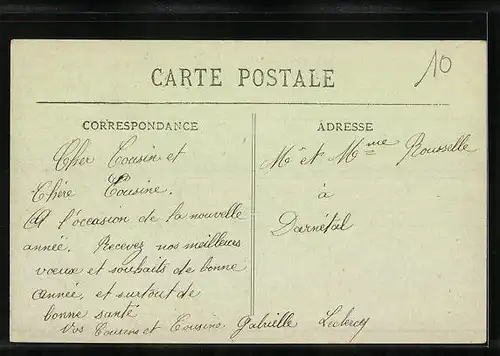 CARTE POSTALE
10
CORRESPONDANCE
Cher Cousin et
Chère Cousine.
A l'occasion de la nouvelle
année. Recevez nos meilleurs
vœux et souhaits de bonne
année, et surtout de
bonne santé
Vos Cousins et Cousine Gabrielle Leclercq
ADRESSE
Mr et Mme Rousselle
à
Darnétal